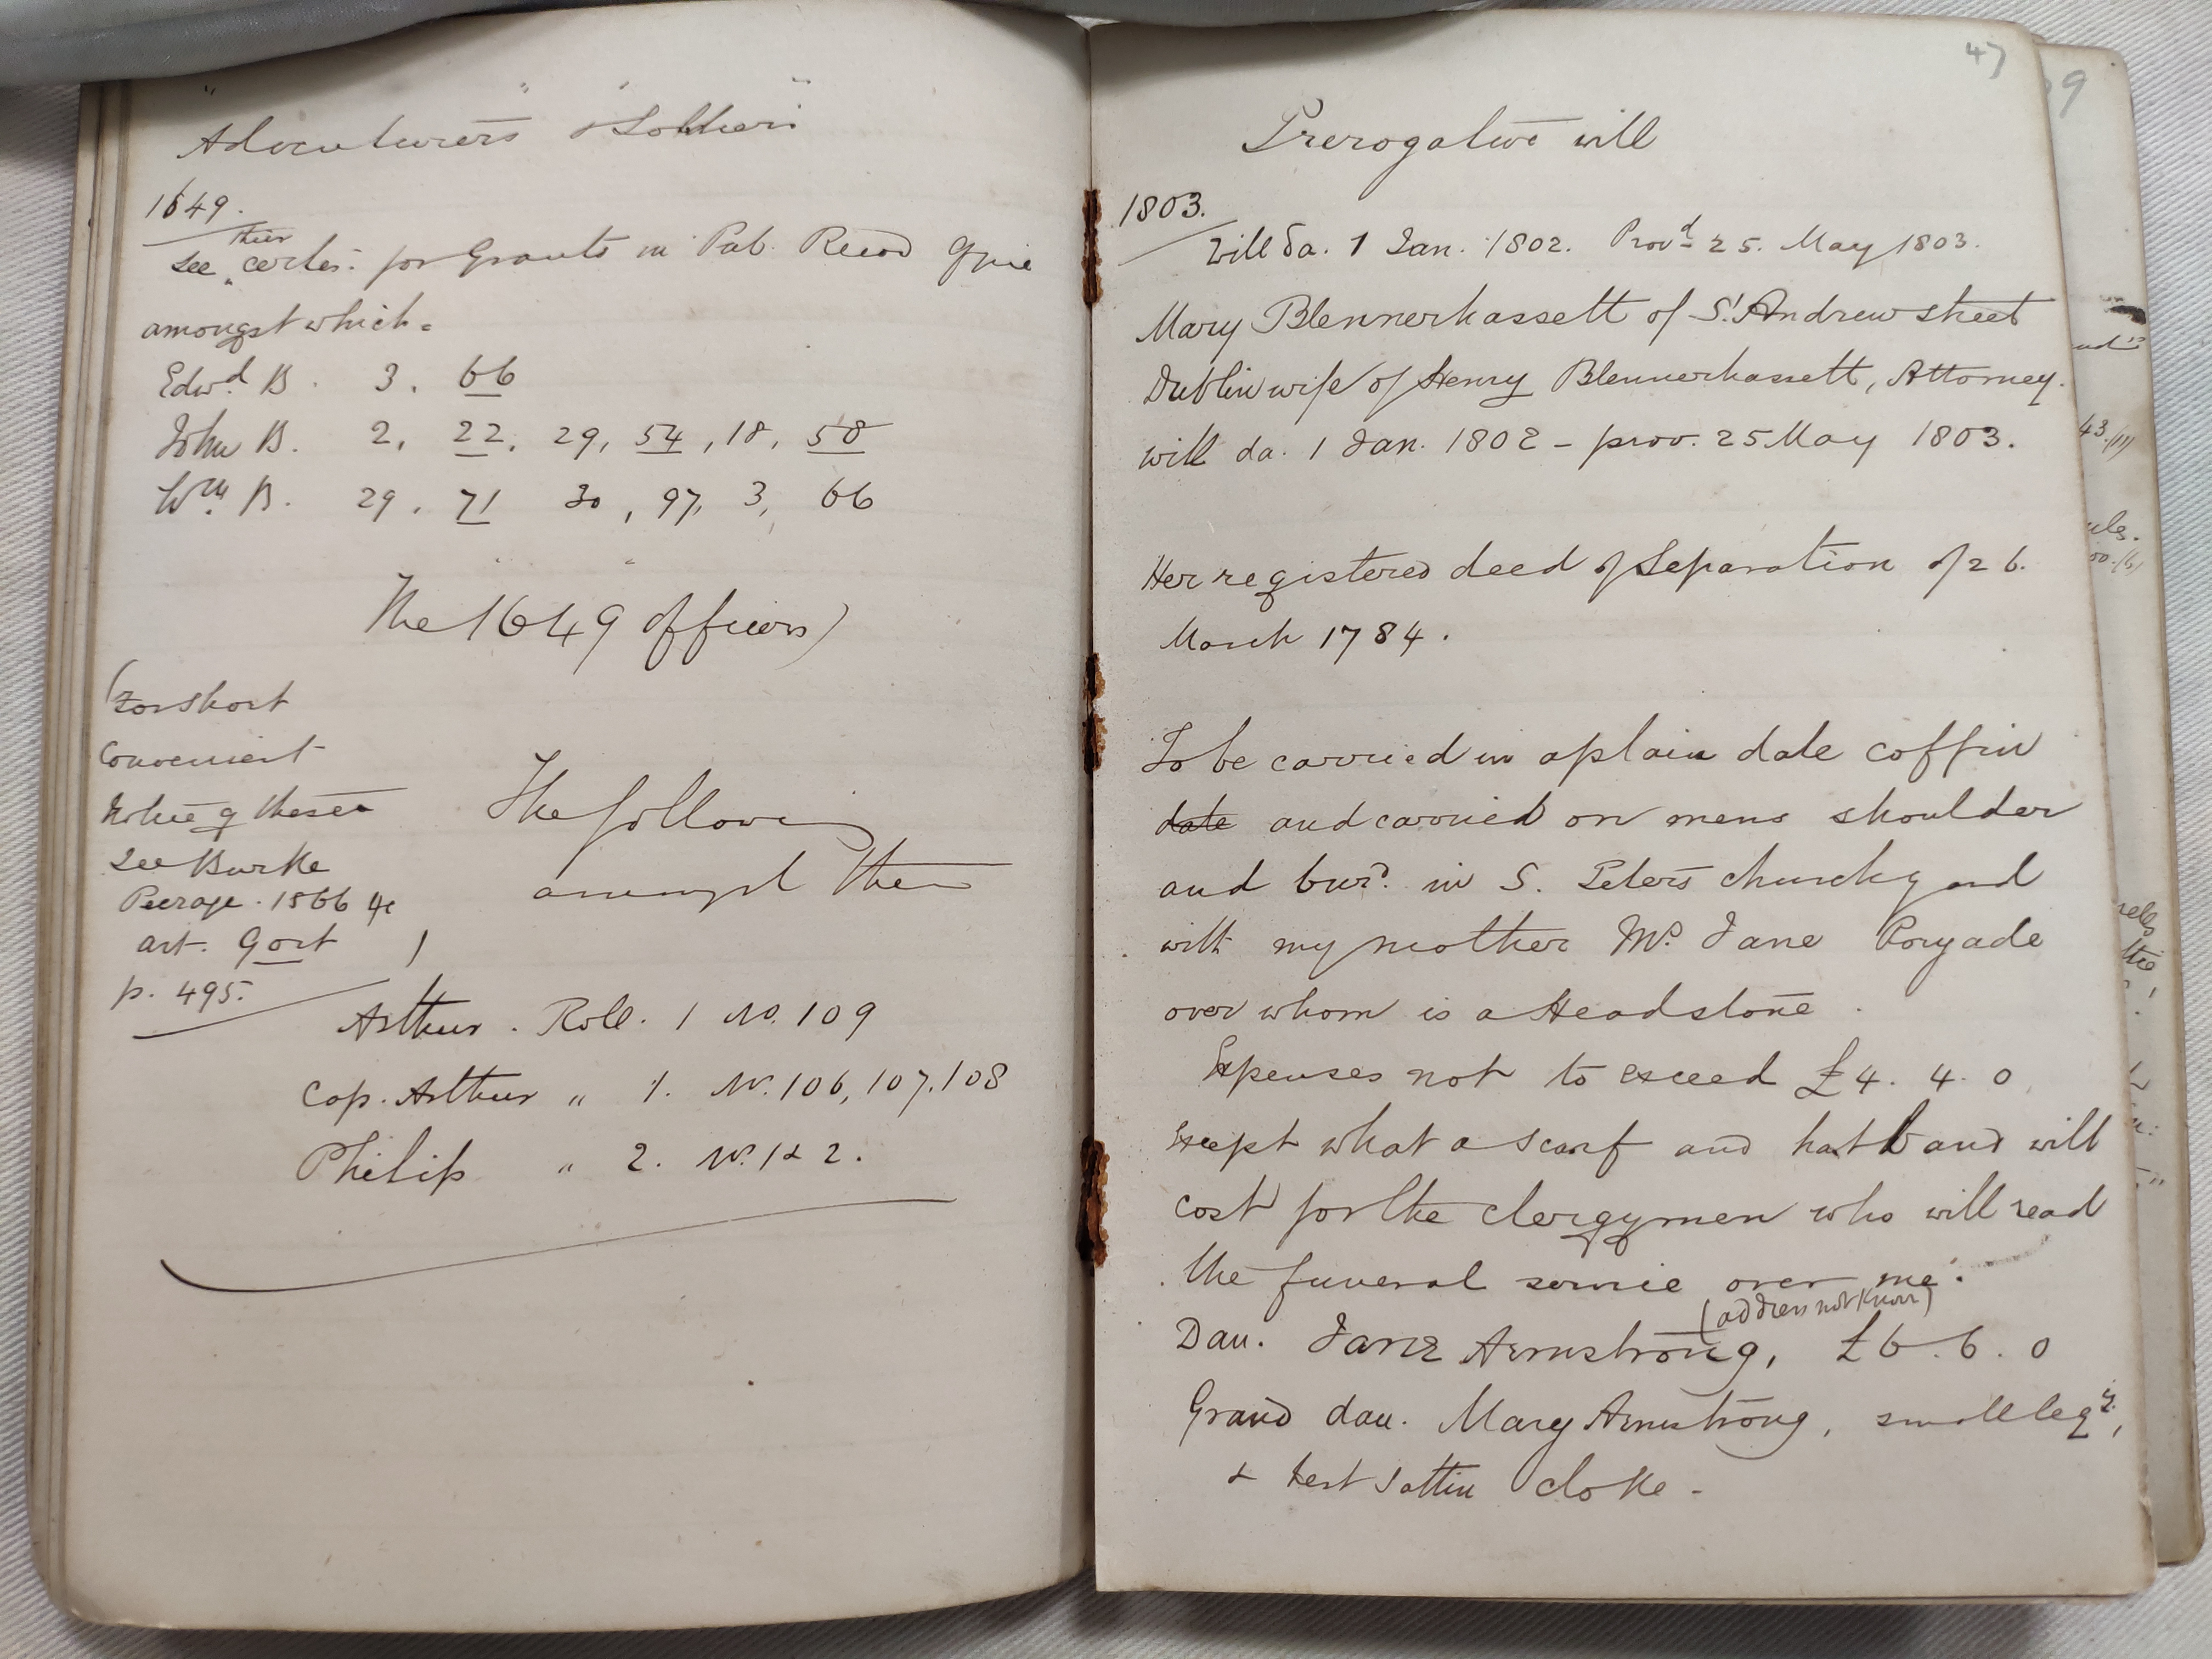 "Adventurers" "& Soldiers"
1649.
their
See certes. for Grants in Pub. Record Office
amongst which.
Edwd B. 3. 66
John B. 2, 22, 29, 54, 18, 58
Wm B. 29. 71 30, 97, 3, 66
The 1649 Officers)
(For short
convenient
notice of these
See Burke
Peerage. 1866 4c
art. Gort
p. 495.
The following
amongst them
Arthur. Roll. 1 No. 109
Cap. Arthur " 1. No. 106, 107, 108
Philip " 2. No. 1 & 2.
47
Prerogative will
1803.
Will da. 1 Jan. 1802. Provd 25. May 1803.
Mary Blennerhassett of St Andrew street
Dublin wife of Henry Blennerhassett, Attorney.
will da. 1 Jan. 1802 - prov. 25 May 1803.
Her registered deed of Separation of 26.
March 1784.
To be carried in a plain dale coffin
date and carried on mens shoulder
and burd. in S. Peters churchyard
with my mother Mrs. Jane
over whom is a Headstone.
Expenses not to exceed £4. 4. 0
Except what a scarf and hatband will
cost for the clergymen who will read
the funeral service over me.
(address not known)
Dau. Jane Armstrong, £6. 6. 0
Grand dau. Mary Armstrong, small legy,
& best sattin cloke -